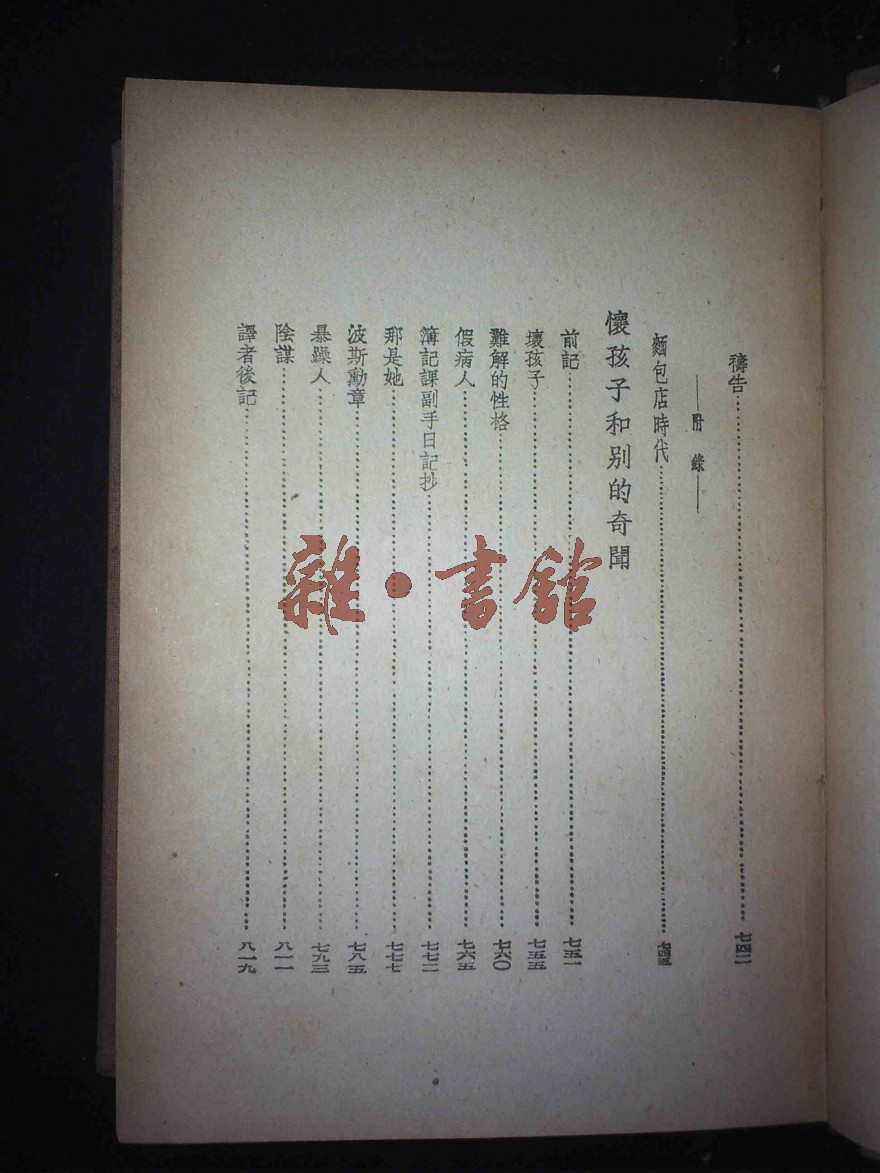 禱告……七四二
——附 錄——
麵包店時代……七四五
懷孩子和别的奇聞
前記……七五一
壞孩子……七五五
難解的性格……七六〇
假病人……七六五
簿記課副手日記抄……七七二
那是她……七七七
波斯勳章……七八五
暴躁人……七九三
陰謀……八一一
譯者後記……八一九
雜·書館